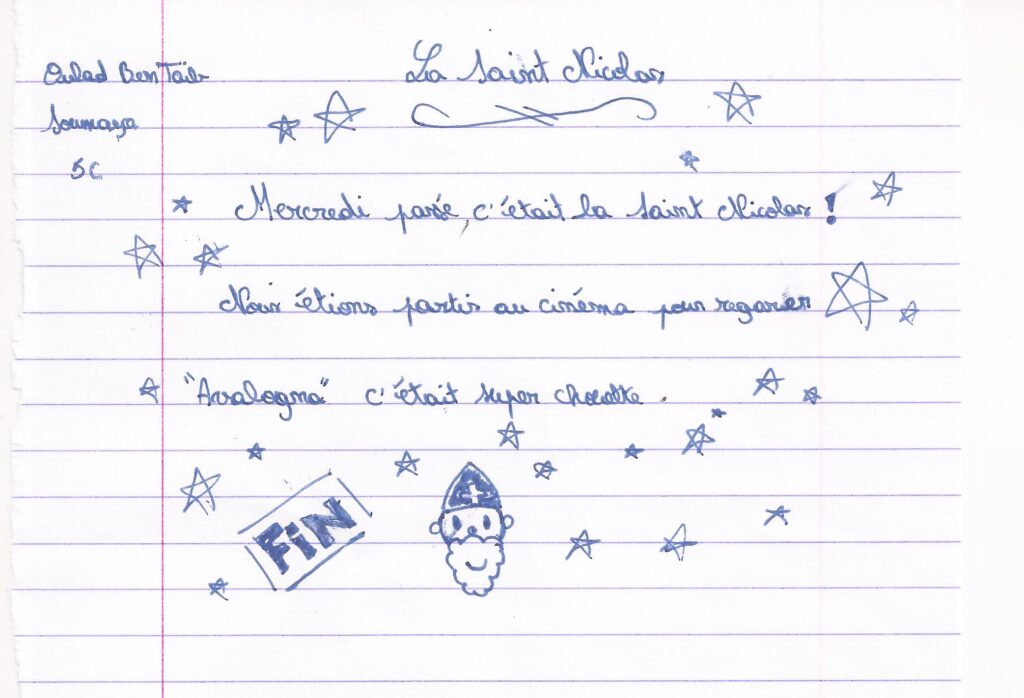 La Saint Nicolas
Oulad Ben Taïb
Soumaya
5C
Mercredi passé, c'était la Saint Nicolas !
Nous étions partis au cinéma pour regarder
"Avalogna" c'était super chouette.
FiN